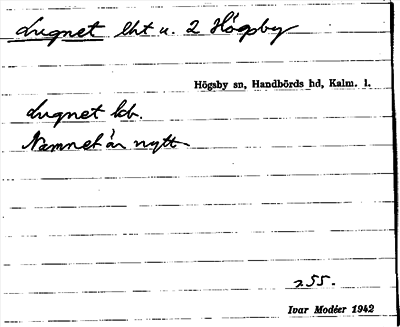 Lugnet lht u. 2 Högsby
Högsby sn, Handbörds hd, Kalm. l.
Lugnet
Namnet är nytt
255.
Ivar Modéer 1942